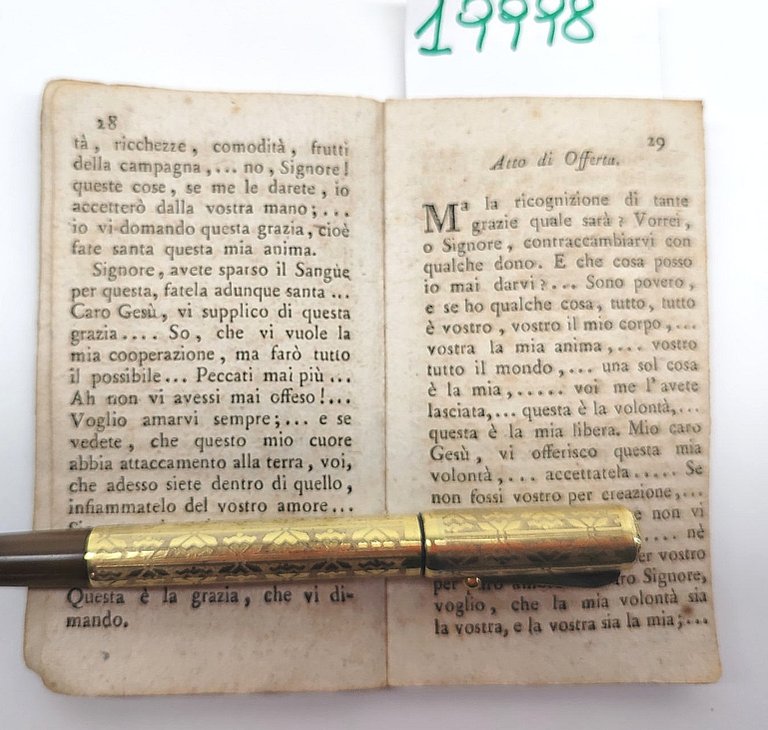 19998
28
tà, ricchezze, comodità, frutti
della campagna,... no, Signore!
queste cose, se me le darete, io
accetterò dalla vostra mano;...
io vi domando questa grazia, cioè
fate santa questa mia anima.
Signore, avete sparso il Sangue
per questa, fatela adunque santa...
Caro Gesù, vi supplico di questa
grazia.... So, che vi vuole la
mia cooperazione, ma farò tutto
il possibile... Peccati mai più...
Ah non vi avessi mai offeso!...
Voglio amarvi sempre;... e se
vedete, che questo mio cuore
abbia attaccamento alla terra, voi,
che adesso siete dentro di quello,
infiammatelo del vostro amore...
Questa è la grazia, che vi di-
mando.
29
Atto di Offerta.
Ma la ricognizione di tante
grazie quale sarà? Vorrei,
o Signore, contraccambiarvi con
qualche dono. E che cosa posso
io mai darvi?... Sono povero,
e se ho qualche cosa, tutto, tutto
è vostro, vostro il mio corpo,...
vostra la mia anima,... vostro
tutto il mondo,... una sol cosa
è la mia,..... voi me l'avete
lasciata,... questa è la volontà,...
questa è la mia libera. Mio caro
Gesù, vi offerisco questa mia
volontà,... accettatela..... Se
non fossi vostro per creazione,...
e non vi
.... nè
vostro
per Signore,
voglio, che la mia volontà sia
la vostra, e la vostra sia la mia;...